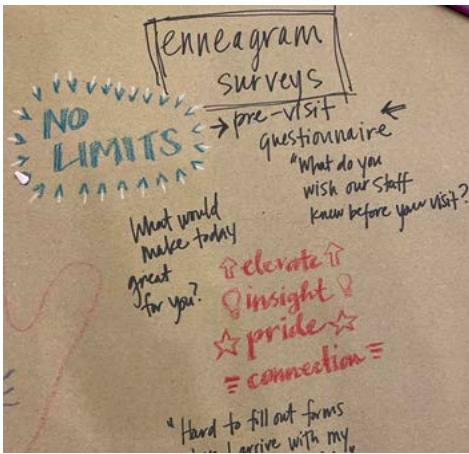 enneagram
surveys
NO
LIMITS
→ pre-visit ←
questionnaire
"What do you
wish our staff
knew before your visit?
What would
make today
great
for you?
elevate
insight
pride
= connection =
"Hard to fill out forms
I arrive with my